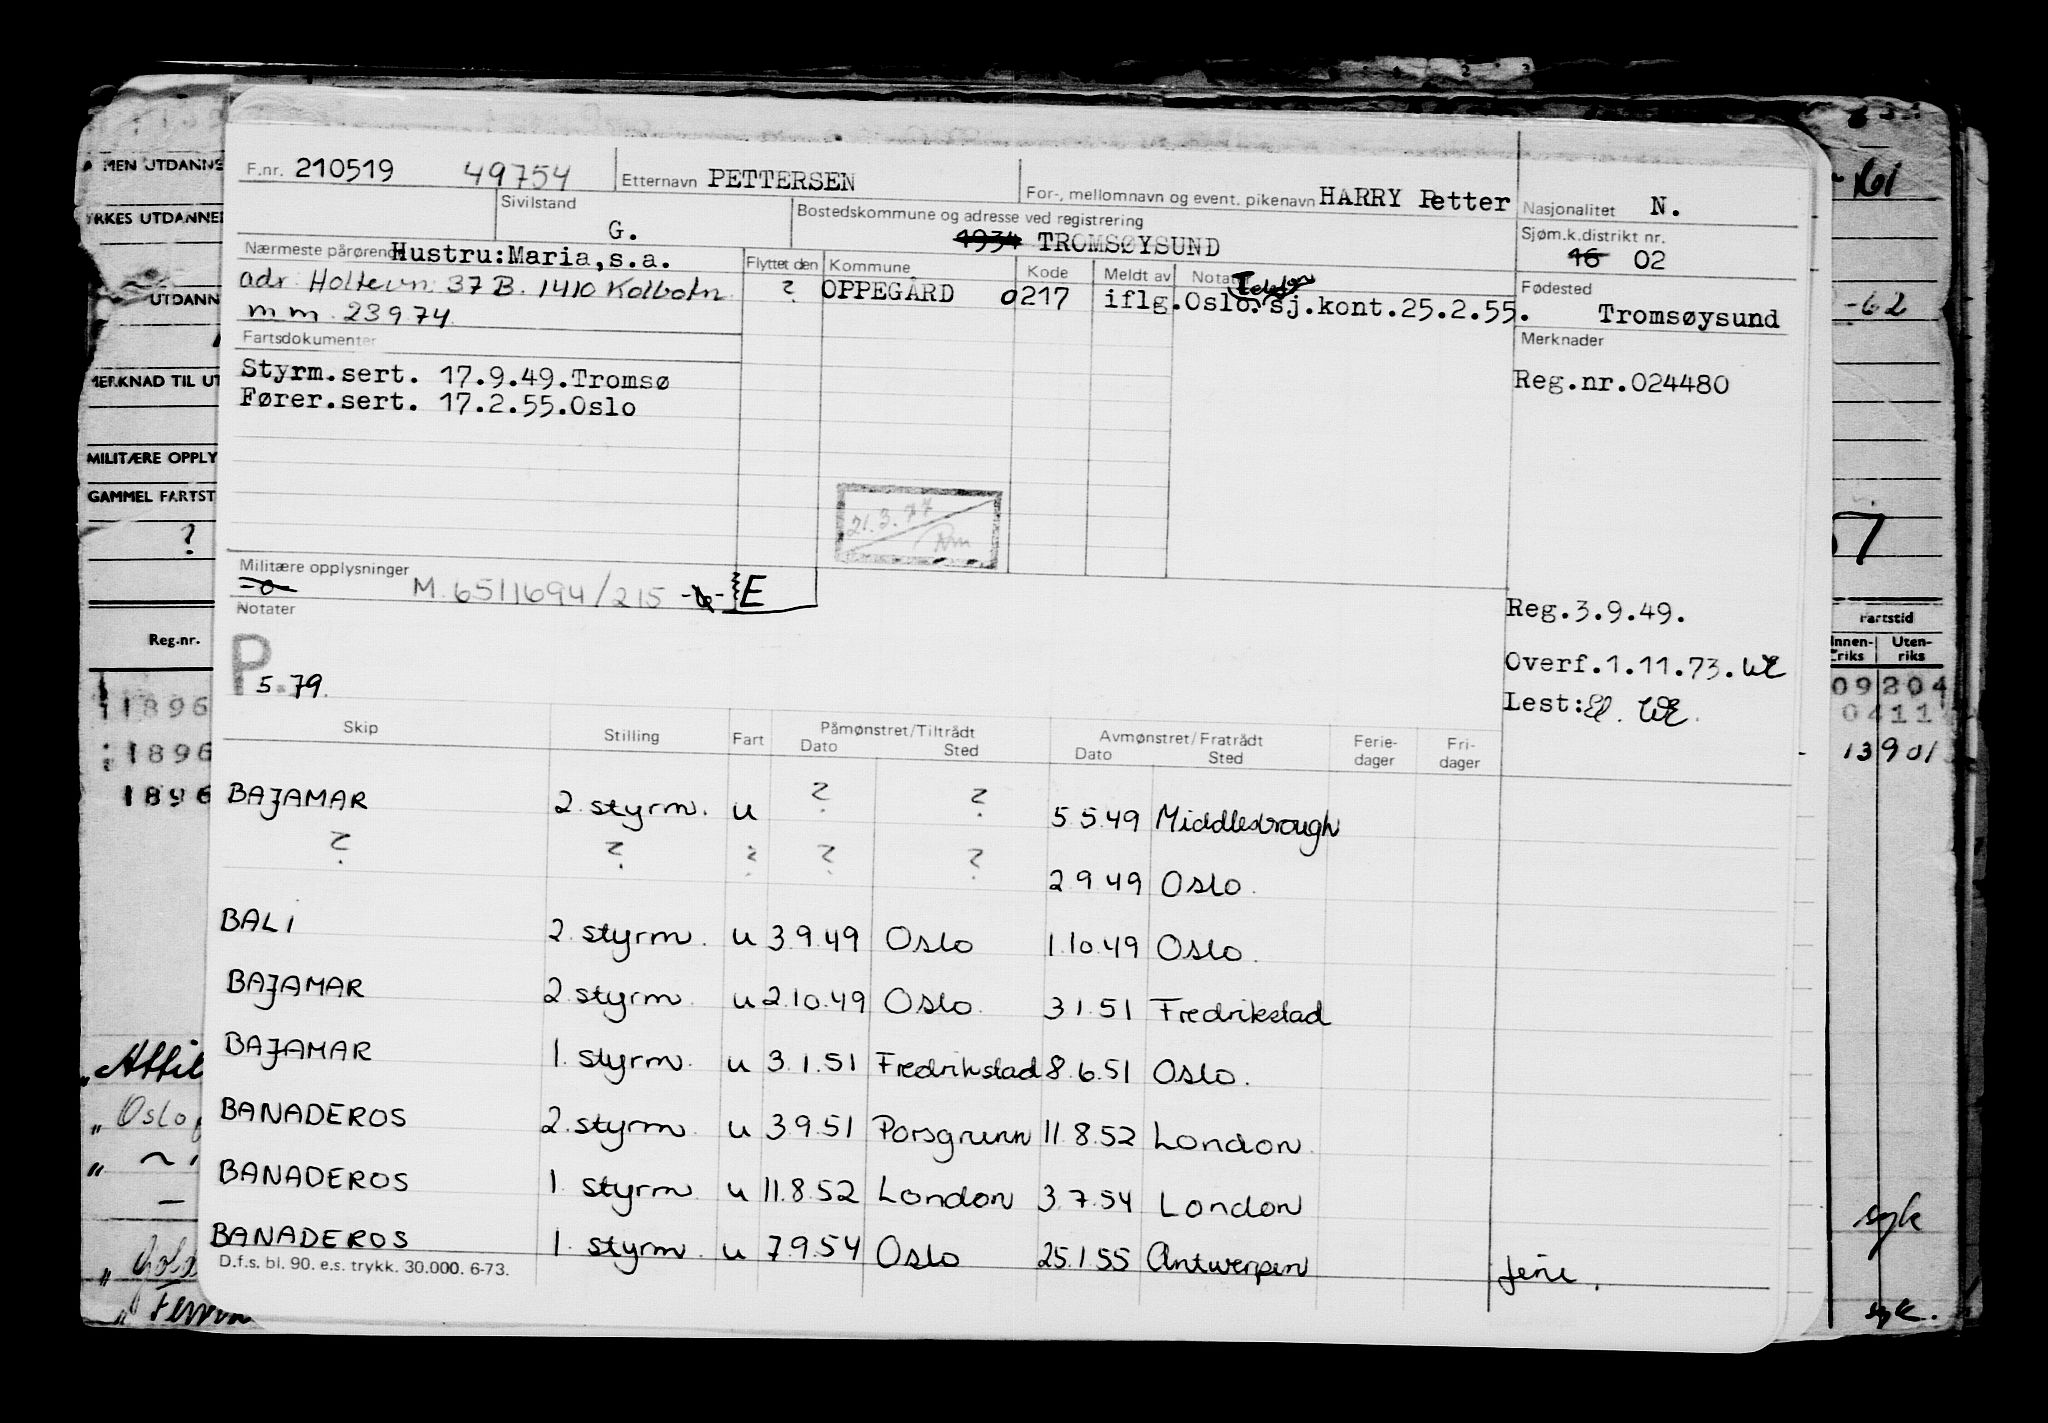 F.nr. 210519 49754 Etternavn PETTERSEN For-, mellomnavn og event. pikenavn HARRY Petter Nasjonalitet N.
Sivilstand G. Bostedskommune og adresse ved registrering 1934 TROMSØYSUND Sjøm.k.distrikt nr. 16 02
Nærmeste pårørende Hustru:Maria,s.a.
adr. Holtevn. 37 B. 1410 Kolbotn
m m. 23974.
Flyttet den Kommune Kode Meldt av Notat
? OPPEGÅRD 0217 iflg.Oslo.sj.kont.25.2.55.
Fødested Tromsøysund
Fartsdokumenter
Styrm.sert. 17.9.49.Tromsø
Fører.sert. 17.2.55.Oslo
Merknader
Reg.nr.024480
21.3.77
Militære opplysninger
-o- M. 6511694/215 E
Notater
P
5.79.
Reg.3.9.49.
Overf.1.11.73. WE
Lest: El. WE.
Skip Stilling Fart Påmønstret/Tiltrådt Dato Sted Avmønstret/Fratrådt Dato Sted Ferie-dager Fri-dager
BAJAMAR 2. styrm. u ? ? 5.5.49 Middlesbrough
? ? ? ? ? 2.9.49 Oslo.
BALI 2. styrm. u 3.9.49 Oslo 1.10.49 Oslo.
BAJAMAR 2. styrm. u 2.10.49 Oslo. 3.1.51 Fredrikstad
BAJAMAR 1. styrm. u 3.1.51 Fredrikstad 8.6.51 Oslo.
BANADEROS 2. styrm. u 3.9.51 Porsgrunn 11.8.52 London.
BANADEROS 1. styrm u 11.8.52 London 3.7.54 London
BANADEROS 1. styrm. u 7.9.54 Oslo 25.1.55 Antwerpen ferie.
D.f.s. bl. 90. e.s. trykk. 30.000. 6-73.
MEN UTDANNS
YRKES UTDANNEL
UTDANN
MERKNAD TIL UT
MILITÆRE OPPLY
GAMMEL FARTST
?
Reg.nr.
1896
1896
1896
Oslo
61
-62
Fartstid
Innen-riks Uten-riks
09204
0411
13901
syk
syk.